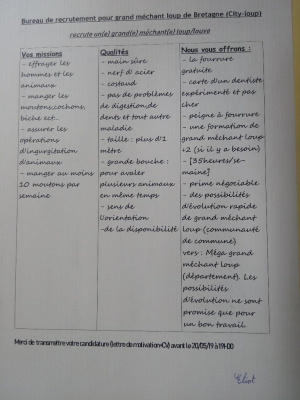 Bureau de recrutement pour grand méchant loup de Bretagne (City-loup)
recrute un(e) grand(e) méchant(e) loup/louve
Vos missions
- effrayer les
hommes et les
animaux
- manger les
moutons,cochons,
biche ect...
- assurer les
opérations
d'ingurgitation
d'animaux
- manger au moins
10 moutons par
semaine
Qualités
- main sûre
- nerf d'acier
- costaud
- pas de problèmes
de digestion,de
dents et tout autre
maladie
- taille : plus d'1
mètre
- grande bouche :
pour avaler
plusieurs animaux
en même temps
- sens de
l'orientation
-de la disponibilité
Nous vous offrons :
- la fourrure
gratuite
- carte d'un dentiste
expérimenté et pas
cher
- peigne à fourrure
- une formation de
grand méchant loup
+2 (si il y a besoin)
- [35heures/se-
maine]
- prime négociable
- des possibilités
d'évolution rapide
de grand méchant
loup (communauté
de commune)
vers : Méga grand
méchant loup
(département). Les
possibilités
d'évolution ne sont
promise que pour
un bon travail.
Merci de transmettre votre candidature (lettre de motivation+CV) avant le 20/05/19 à 19H00
Eliot